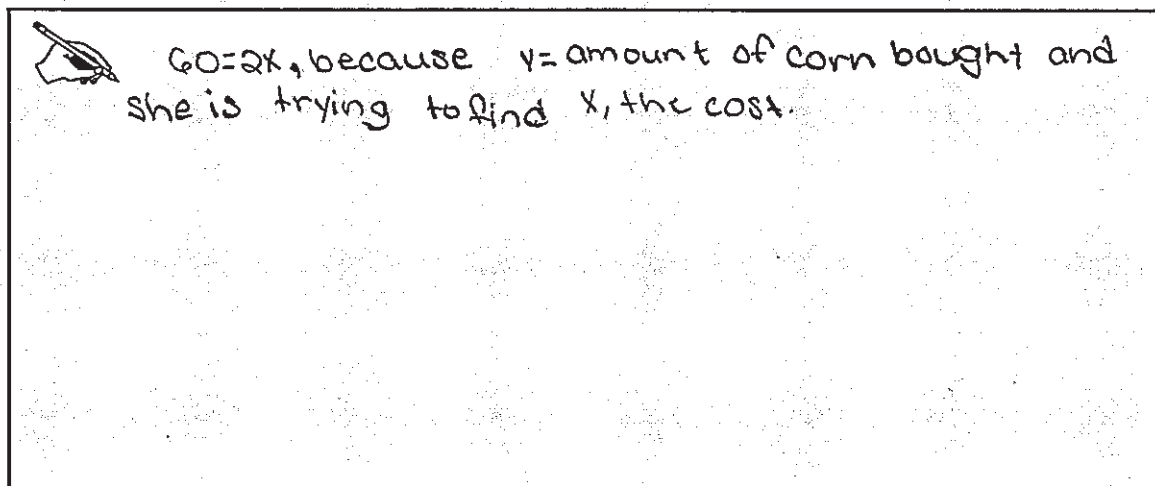 60=2x, because y= amount of corn bought and
she is trying to find x, the cost.